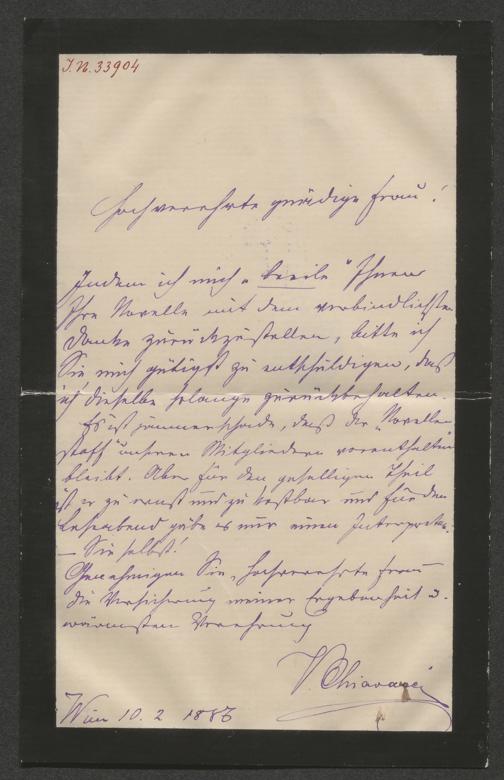 J.N. 33904
Hochverehrte gnädige Frau!
Indem ich mich „beeile“ Ihnen
Ihre Novelle mit dem verbindlichsten
Danke zurückzustellen, bitte ich
Sie mich gütigst zu entschuldigen, daß
ich dieselbe solange zurückbehalten.
Es ist jammerschade, daß der „Novellen
stoff“ unseren Mitgliedern vorenthalten
bleibt. Aber für den geselligen Theil
ist er zu ernst und zu kostbar und für den
Leseabend gäbe es nur einen Interpreten
– Sie selbst!
Genehmigen Sie, hochverehrte Frau
die Versicherung meiner Ergebenheit u.
wärmsten Verehrung
V. Chiavacci
Wien 10. 2 1886